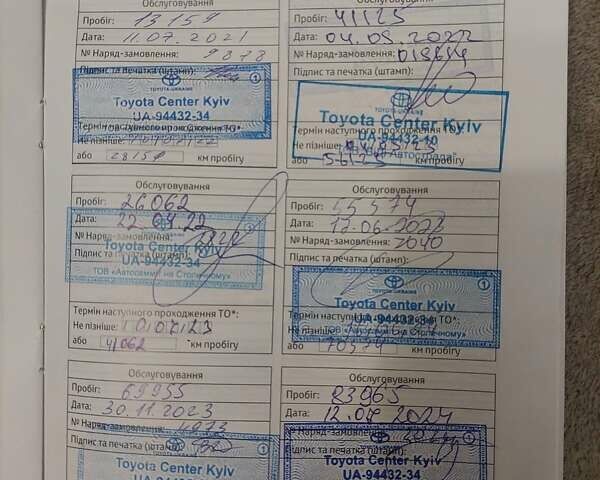 Пробіг: 13159
Дата: 11.07.2021
№ Наряд-замовлення: 9878
Підпис та печатка (штамп):
TOYOTA-UKRAINE
Toyota Center Kyiv
UA-94432-34
Термін наступного проходження ТО*:
Не пізніше:
або 28159 км пробігу
Пробіг: 41125
Дата: 04.05.2022
№ Наряд-замовлення:
Підпис та печатка (штамп):
TOYOTA-UKRAINE
Toyota Center Kyiv
UA-94432-10
Термін наступного проходження ТО*:
Не пізніше:
або 56125 км пробігу
Обслуговування
Пробіг: 26062
Дата: 22.04.22
№ Наряд-замовлення:
Підпис та печатка (штамп):
Toyota Center Kyiv
UA-94432-34
ТОВ «Автосаміт на Столичному»
Термін наступного проходження ТО*:
Не пізніше:
або 41062 км пробігу
Обслуговування
Пробіг: 55374
Дата:
№ Наряд-замовлення: 7040
Підпис та печатка (штамп):
TOYOTA-UKRAINE
Toyota Center Kyiv
UA-94432-34
Термін наступного проходження ТО*:
Не пізніше:
або 70374 км пробігу
Обслуговування
Пробіг: 69955
Дата: 30.11.2023
№ Наряд-замовлення: 4973
Підпис та печатка (штамп):
Toyota Center Kyiv
UA-94432-34
Обслуговування
Пробіг: 83965
Дата: 12.07.2024
№ Наряд-замовлення:
Підпис та печатка (штамп):
Toyota Center Kyiv
UA-94432-34